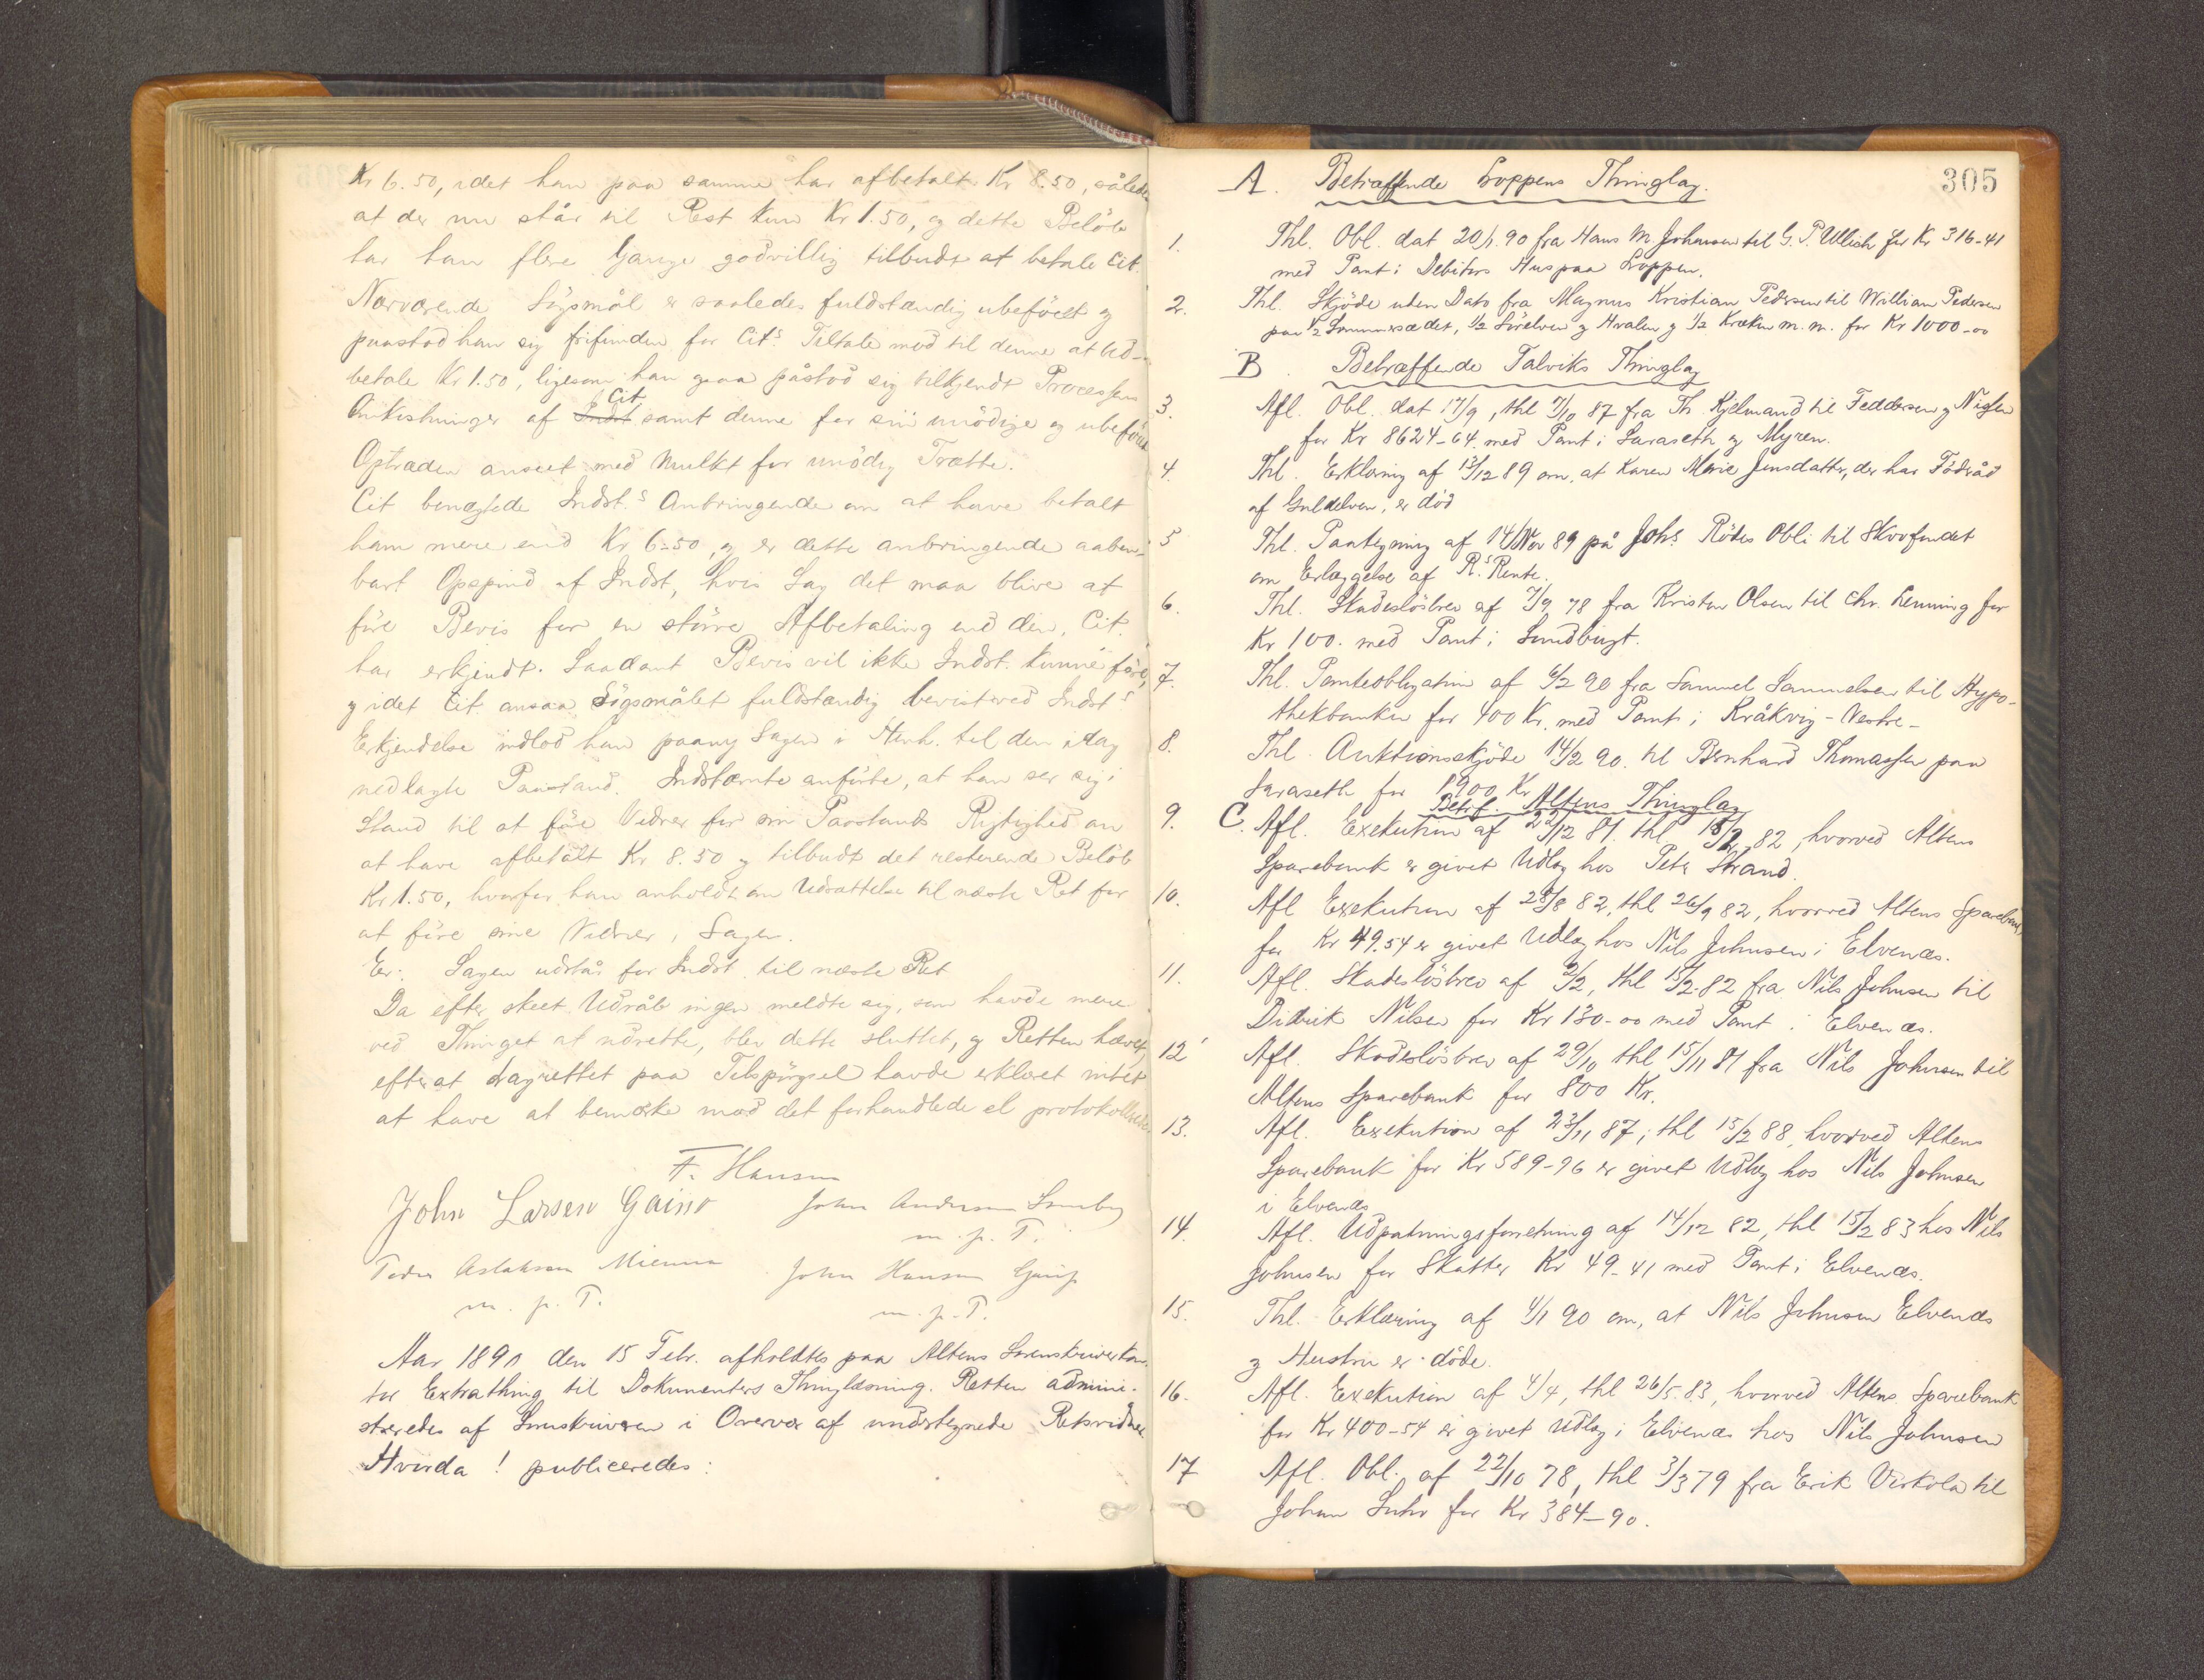 Kr 6.50, idet han paa samme har afbetalt Kr 8.50, således
at der nu står til Rest kun Kr 1.50, og dette Belöb
har han flere Gange godvillig tilbudt at betale Cit.
Nærværende Sögsmål er saaledes fuldstændig ubeföiet og
paastod han sig frifunden for Cits Tiltale mod til denne at ud-
betale Kr 1.50, ligesom han ogsaa påstod sig tilkjendt Processens
Omkostninger af Cit samt denne for sin unödige og ubeföiede
Optræden anseet med Mulkt for unödig Trætte.
Cit benægtede Indst.s Anbringende om at have betalt
ham mere end Kr 6-50, og er dette anbringende aaben-
bart Opspind af Indst, hvis Sag det maa blive at
före Bevis for en större Afbetaling end den, Cit.
har erkjendt. Saadant Bevis vil ikke Indst. kunne före,
og idet Cit. ansaa Sögsmålet fuldstændig bevist ved Indsts
Erkjendelse indlod han paany Sagen i Henh. til den idag
nedlagte Paastand. Indstævnte anförte, at han ser sig i
Stand til at före Vidner for sin Paastands Rigtighed om
at have afbetalt Kr 8.50 og tilbudt det resterende Belöb
Kr 1.50, hvorfor han anholdt om Udsættelse til næste Ret for
at före sine Vidner i Sagen.
Er: Sagen udstår for Indst. til næste Ret
Da efter skeet Udråb ingen meldte sig, som havde mere
ved Thinget at udrette, blev dette sluttet, og Retten hævet,
efterat Lagrettet paa Tilspörgsel havde erklæret intet
at have at bemærke mod det forhandlede el protokollerede
F. Hansen
John Larsen Gaino John Andersen
m. p. T.
Peder Aslaksen Mienna John Hansen
m. p. T. m. p. T.
Aar 1890 den 15 Febr. afholdtes paa Altens Sorenskriverkon-
tor Extrathing til Dokumenters Thinglæsning. Retten admini-
streredes af Sorenskriveren i Overvær af undertegnede Retsvidner
Hvorda! publiceredes:
305
A. Betræffende Loppens Thinglag.
1. Thl. Obl. dat 20/1.90 fra Hans M. Johansen til G. P. Ullich for Kr 316-41
med Pant i Debitors Hus paa Loppen.
2. Thl. Skjöde uden Dato fra Magnus Kristian Pedersen til William Pedersen
paa 1/2 Sommersædet, 1/2 Sörelven og Hvalen og 1/2 Kræken m. m. for Kr 1000-00
B. Betræffende Talviks Thinglag
3. Afl. Obl. dat 17/9, thl 7/10 87 fra Th. Kjelmand til Feddersen og Nissen
for Kr 8624-64 med Pant i Saraseth og Myren.
4. Thl. Erklæring af 13/12 89 om, at Karen Marie Jensdatter, der har Födråd
af Guldelven, er död
5 Thl. Paategning af 14/Nov 89 på Johs. Rödes Obli til Skovfondet
om Erlæggelse af R.s Rente.
6. Thl. Skadeslösbrev af 7/9 78 fra Kristen Olsen til Chr. Lenning for
Kr 100. med Pant i Sundbugt.
7. Thl. Panteobligation af 6/2 90 fra Samuel Samuelsen til Hypo-
thekbanken for 400 Kr. med Pant i Kråkvig-Vestre-
8. Thl. Auktionsskjöde 14/2 90. til Bernhard Thomassen paa
Saraseth for 1900 Kr
C. Betrf. Altens Thinglag
9. Afl. Exekution af 22/12 81. thl 15/2 82, hvorved Altens
Sparebank er givet Udlæg hos Peter Strand.
10. Afl Exekution af 28/8 82, thl 26/9 82, hvorved Altens Sparebank
for Kr 49.54 er givet Udlæg hos Nils Johnsen i Elvenæs.
11. Afl. Skadeslösbrev af 2/2, thl 15/2-82 fra Nils Johnsen til
Didrik Nilsen for Kr 130-00 med Pant i Elvenæs.
12 Afl. Skadeslösbrev af 29/10 thl 15/11 81 fra Nils Johnsen til
Altens Sparebank for 800 Kr.
13. Afl. Exekution af 23/11 87, thl 15/2 88, hvorved Altens
Sparebank for Kr 589-96 er givet Udlæg hos Nils Johnsen
i Elvenæs
14. Afl. Udpantningsforretning af 14/12 82, thl 15/2 83 hos Nils
Johnsen for Skatter Kr 49-41 med Pant i Elvenæs.
15. Thl. Erklæring af 4/1 90 om, at Nils Johnsen Elvenæs
og Hustru er döde.
16. Afl. Exekution af 4/4, thl 26/5.83, hvorved Altens Sparebank
for Kr 400-54 er givet Udlæg i Elvenæs hos Nils Johnsen
17 Afl. Obl. af 22/10 78, thl 3/3 79 fra Erik Virkola til
Johan Suhr for Kr 384-90.